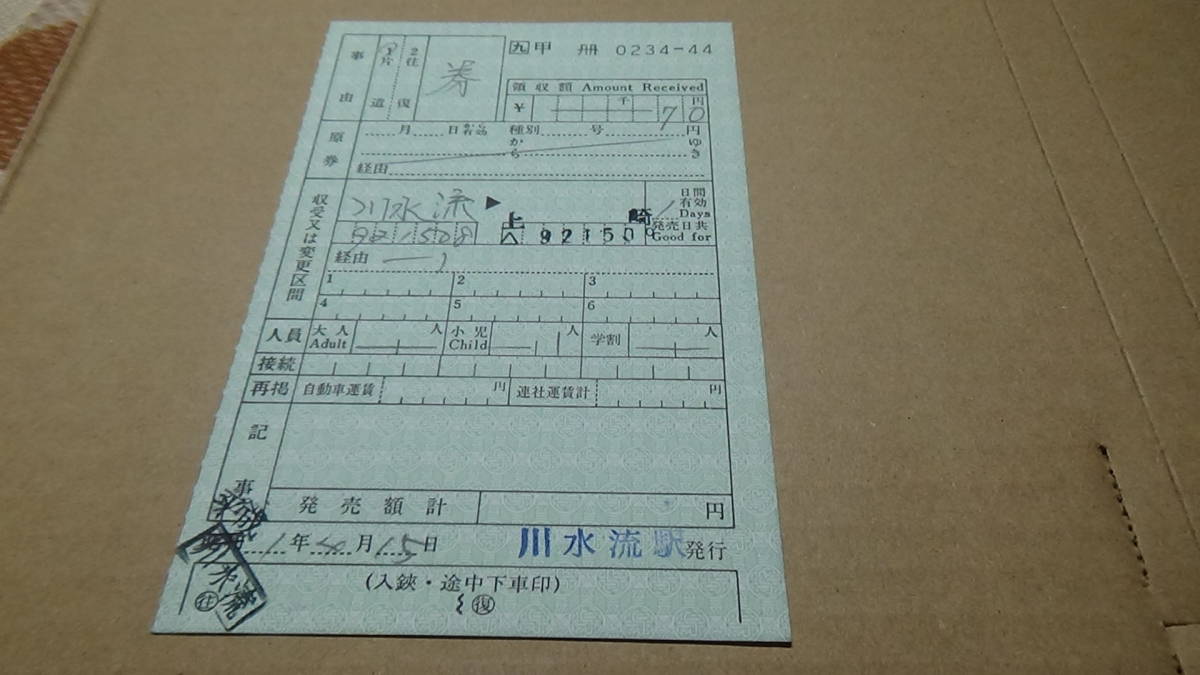 事由
1片道
2往復
券
九 甲 冊 0234-44
領収額 Amount Received
￥ 千 7 0円
原券
月 日から有効 種別 号 円
から ゆき
経由
収受又は変更区間
川水流 ▶ 上 崎
921508 921500
1日間有効 Days
発売日共 Good for
経由 ー
1 2 3
4 5 6
人員 大人 Adult 人 小児 Child 人 学割 人
接続
再掲 自動車運賃 円 連社運賃計 円
記事
発売額計 円
平成 1年4月15日 川水流駅発行
川水流
(入鋏・途中下車印)
往 復